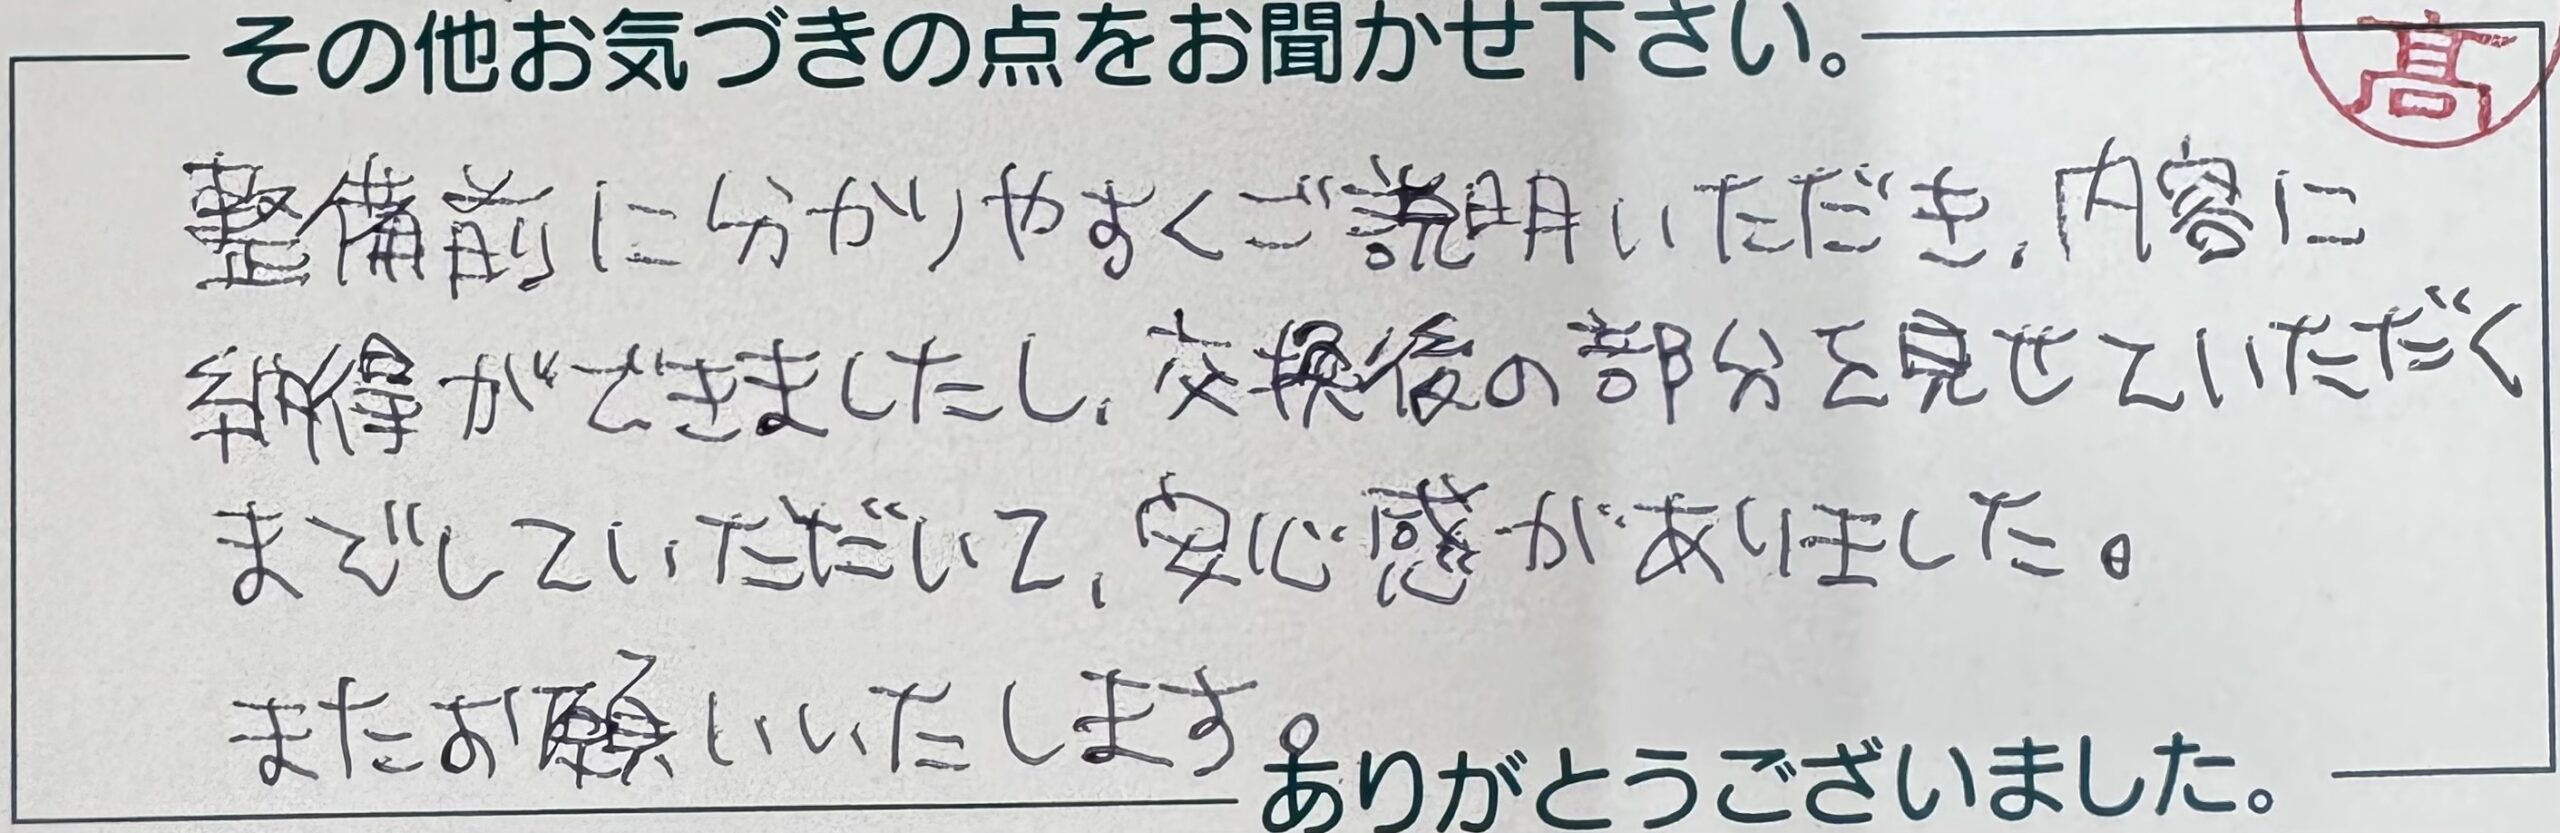 その他お気づきの点をお聞かせ下さい。
髙
整備前に分かりやすくご説明いただき、内容に
納得ができましたし、交換後の部分を見せていただく
までしていただいて、安心感がありました。
またお願いいたします。
ありがとうございました。